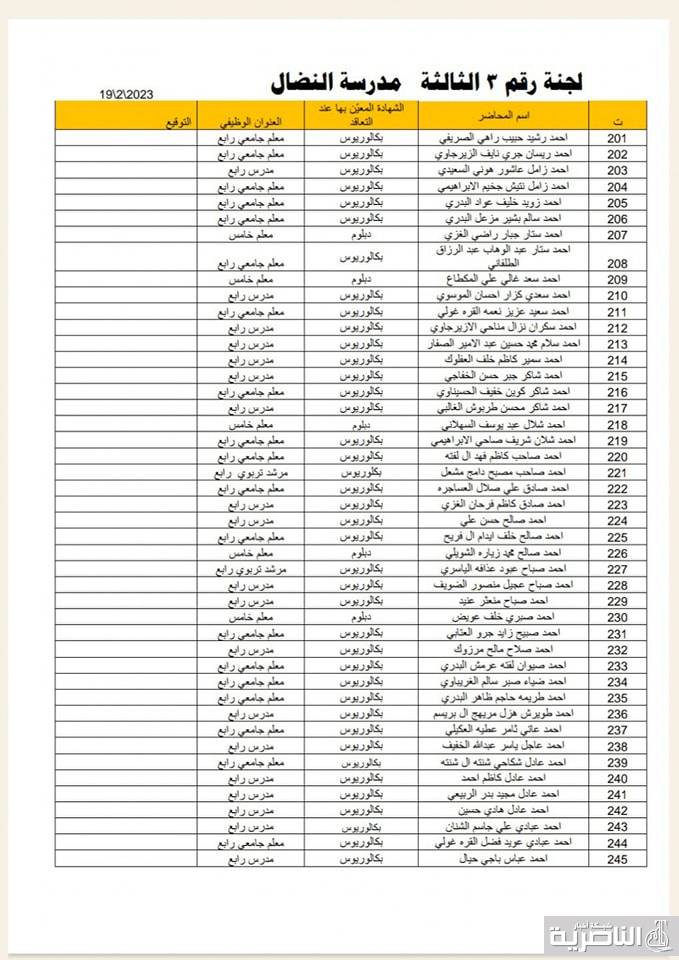 لجنة رقم ٣ الثالثة مدرسة النضال
19\2\2023
ت اسم المحاضر الشهادة المعيّن بها عند التعاقد العنوان الوظيفي التوقيع
201 احمد رشيد حبيب راهي الصريفي بكالوريوس معلم جامعي رابع
202 احمد ريسان جري نايف الزيرجاوي بكالوريوس معلم جامعي رابع
203 احمد زامل عاشور هوني السعيدي بكالوريوس مدرس رابع
204 احمد زامل نتيش جخيم الابراهيمي بكالوريوس معلم جامعي رابع
205 احمد زويد خليف عواد البدري بكالوريوس معلم جامعي رابع
206 احمد سالم بشير مزعل البدري بكالوريوس معلم جامعي رابع
207 احمد ستار جبار راضي الغزي دبلوم معلم خامس
208 احمد ستار عبد الوهاب عبد الرزاق الطلقاني بكالوريوس معلم جامعي رابع
209 احمد سعد غالي علي المكطاع دبلوم معلم خامس
210 احمد سعدي كزار احسان الموسوي بكالوريوس مدرس رابع
211 احمد سعيد عزيز نعمه القره غولي بكالوريوس معلم جامعي رابع
212 احمد سكران نزال مناحي الازيرجاوي بكالوريوس مدرس رابع
213 احمد سلام محمد حسين عبد الامير الصفار بكالوريوس مدرس رابع
214 احمد سمير كاظم خلف العقلوك بكالوريوس مدرس رابع
215 احمد شاكر جبر حسن الخفاجي بكالوريوس مدرس رابع
216 احمد شاكر كوين خفيف الحسيناوي بكالوريوس معلم جامعي رابع
217 احمد شاكر محسن طربوش الغالبي بكالوريوس مدرس رابع
218 احمد شلال عبد يوسف السهلاني دبلوم معلم خامس
219 احمد شلان شريف صاحي الابراهيمي بكالوريوس معلم جامعي رابع
220 احمد صاحب كاظم فهد ال لفته بكالوريوس معلم جامعي رابع
221 احمد صاحب مصبح دامج مشعل بكلوريوس مرشد تربوي رابع
222 احمد صادق علي صلال العساجره بكالوريوس معلم جامعي رابع
223 احمد صادق كاظم فرحان الغزي بكالوريوس مدرس رابع
224 احمد صالح حسن علي بكالوريوس مدرس رابع
225 احمد صالح خلف ايدام ال فريح بكالوريوس معلم جامعي رابع
226 احمد صالح محمد زياره الشويلي دبلوم معلم خامس
227 احمد صباح عبود عذافه الياسري بكالوريوس مرشد تربوي رابع
228 احمد صباح عجيل منصور الضويف بكالوريوس مدرس رابع
229 احمد صباح منعثر عنيد بكالوريوس مدرس رابع
230 احمد صبري خلف عويض دبلوم معلم خامس
231 احمد صبيح زايد جرو العتابي بكالوريوس معلم جامعي رابع
232 احمد صلاح مالح مرزوك بكالوريوس مدرس رابع
233 احمد صيوان لفته عرمش البدري بكالوريوس معلم جامعي رابع
234 احمد ضياء صبر سالم الغريباوي بكالوريوس معلم جامعي رابع
235 احمد طريمه حاجم ظاهر البدري بكالوريوس معلم جامعي رابع
236 احمد طويرش هزل مريهج ال بريسم بكالوريوس مدرس رابع
237 احمد عاتي ثامر عطيه العكيلي بكالوريوس معلم جامعي رابع
238 احمد عاجل ياسر عبدالله الخفيف بكالوريوس مدرس رابع
239 احمد عادل شكاحي شنته ال شنته بكالوريوس معلم جامعي رابع
240 احمد عادل كاظم احمد بكالوريوس مدرس رابع
241 احمد عادل مجيد بدر الربيعي بكالوريوس مدرس رابع
242 احمد عادل هادي حسين بكالوريوس مدرس رابع
243 احمد عبادي علي جاسم الشنان بكالوريوس مدرس رابع
244 احمد عبادي عويد فضل القره غولي بكالوريوس معلم جامعي رابع
245 احمد عباس باجي حيال بكالوريوس مدرس رابع
شبكة أخبار
الناصرية